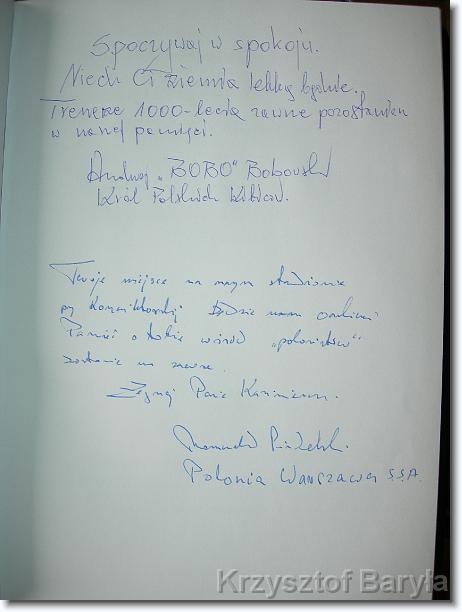 Spoczywaj w spokoju.
Niech Ci ziemia lekką będzie.
Trenerze 1000-lecia zawsze pozostaniesz
w naszej pamięci.
Andrzej „BOBO” Bobowski
Król Polskich Kibiców.
Twoje miejsce na naszym stadionie
przy Konwiktorskiej będzie nam
Pamięć o Tobie wśród „polonistów”
zostanie na zawsze.
Żegnaj Panie Kazimierzu.
Polonia Warszawa S.S.A.
Krzysztof Baryła